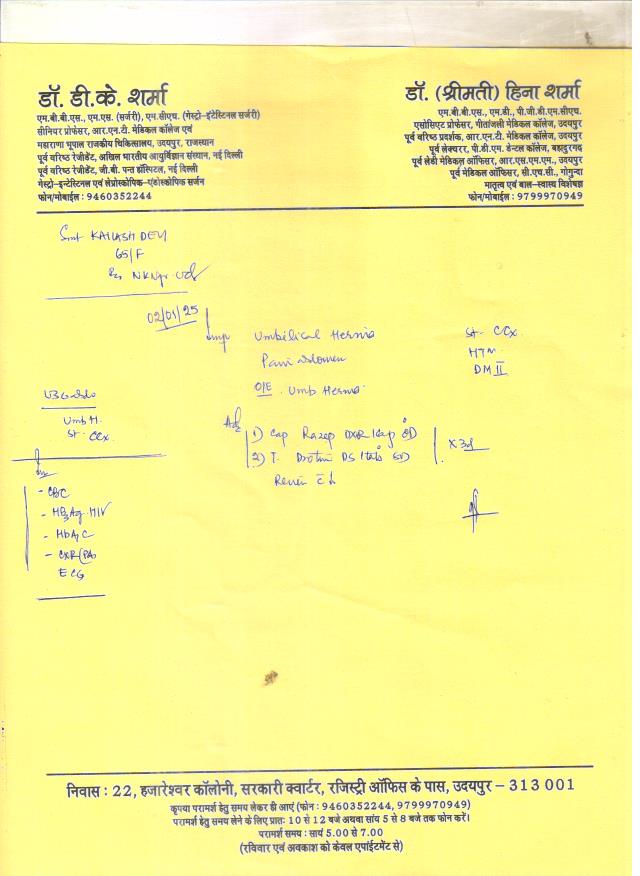 डॉ. डी.के. शर्मा
एम.बी.बी.एस., एम.एस. (सर्जरी), एम.सीएच. (गेस्ट्रो-इंटेस्टिनल सर्जरी)
सीनियर प्रोफेसर, आर.एन.टी. मेडिकल कॉलेज एवं
महाराणा भूपाल राजकीय चिकित्सालय, उदयपुर, राजस्थान
पूर्व वरिष्ठ रेजीडेंट, अखिल भारतीय आयुर्विज्ञान संस्थान, नई दिल्ली
पूर्व वरिष्ठ रेजीडेंट, जी.बी. पन्त हॉस्पिटल, नई दिल्ली
गेस्ट्रो-इन्टेस्टिनल एवं लेप्रोस्कोपिक-एंडोस्कोपिक सर्जन
फोन/मोबाईल : 9460352244
डॉ. (श्रीमती) हिना शर्मा
एम.बी.बी.एस., एम.डी., पी.जी.डी.एम.सीएच.
एसोसिएट प्रोफेसर, गीतांजली मेडिकल कॉलेज, उदयपुर
पूर्व वरिष्ठ प्रदर्शक, आर.एन.टी. मेडिकल कॉलेज, उदयपुर
पूर्व लेक्चरर, पी.डी.एम. डेन्टल कॉलेज, बहादुरगढ़
पूर्व लेडी मेडिकल ऑफिसर, आर.एस.एम.एम., उदयपुर
पूर्व मेडिकल ऑफिसर, सी.एच.सी., गोगुन्दा
मातृत्व एवं बाल-स्वास्थ्य विशेषज्ञ
फोन/मोबाईल : 9799970949
Smt KAILASH DEVI
65/F
02/01/25
Umbilical Hernia
Pain abdomen
O/E Umb Hernia
St- CCx
HTN
DM II
Adv
1) Cap Razep DXR 1cap OD
2) T. Drotin DS 1tab SD
X 3d
Umb H.
St- CCx
- CBC
- HBsAg. HIV
- HbA1C
- CXR (PA)
ECG
निवास : 22, हजारेश्वर कॉलोनी, सरकारी क्वार्टर, रजिस्ट्री ऑफिस के पास, उदयपुर - 313 001
कृपया परामर्श हेतु समय लेकर ही आएं (फोन : 9460352244, 9799970949)
परामर्श हेतु समय लेने के लिए प्रातः 10 से 12 बजे अथवा सांय 5 से 8 बजे तक फोन करें।
परामर्श समय : सायं 5.00 से 7.00
(रविवार एवं अवकाश को केवल एपांईटमेंट से)